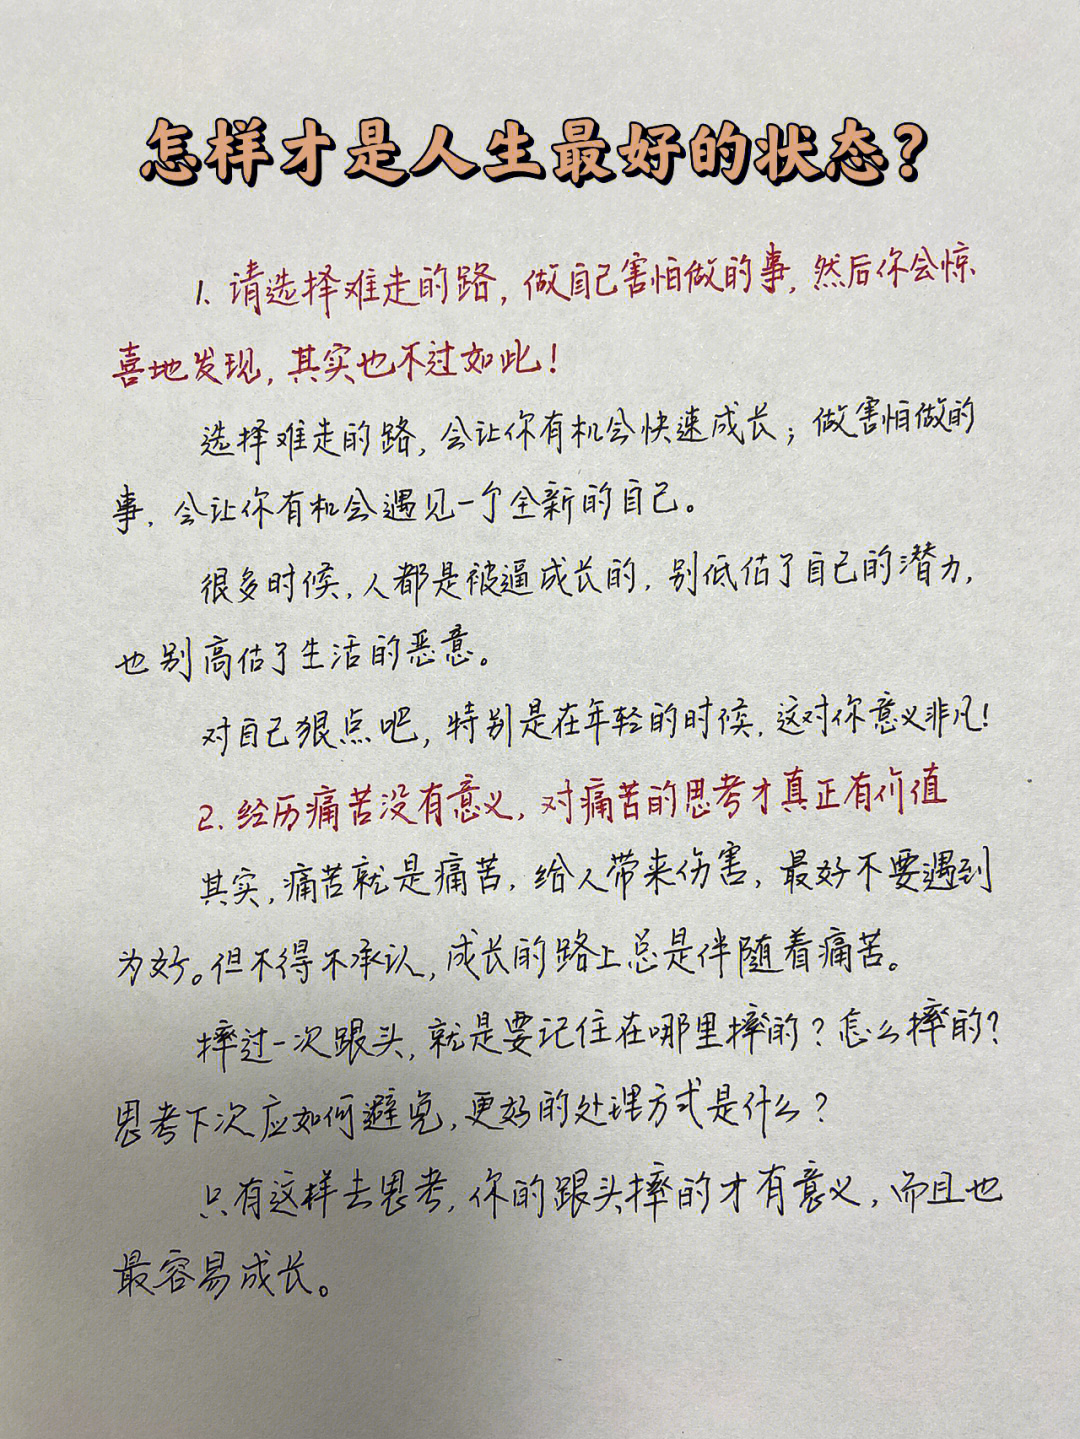 怎样才是人生最好的状态?
1. 请选择难走的路，做自己害怕做的事，然后你会惊
喜地发现，其实也不过如此！
选择难走的路，会让你有机会快速成长；做害怕做的
事，会让你有机会遇见一个全新的自己。
很多时候，人都是被逼成长的，别低估了自己的潜力，
也别高估了生活的恶意。
对自己狠点吧，特别是在年轻的时候，这对你意义非凡！
2. 经历痛苦没有意义，对痛苦的思考才真正有价值
其实，痛苦就是痛苦，给人带来伤害，最好不要遇到
为好。但不得不承认，成长的路上总是伴随着痛苦。
摔过一次跟头，就是要记住在哪里摔的？怎么摔的？
思考下次应如何避免，更好的处理方式是什么？
只有这样去思考，你的跟头摔的才有意义，而且也
最容易成长。